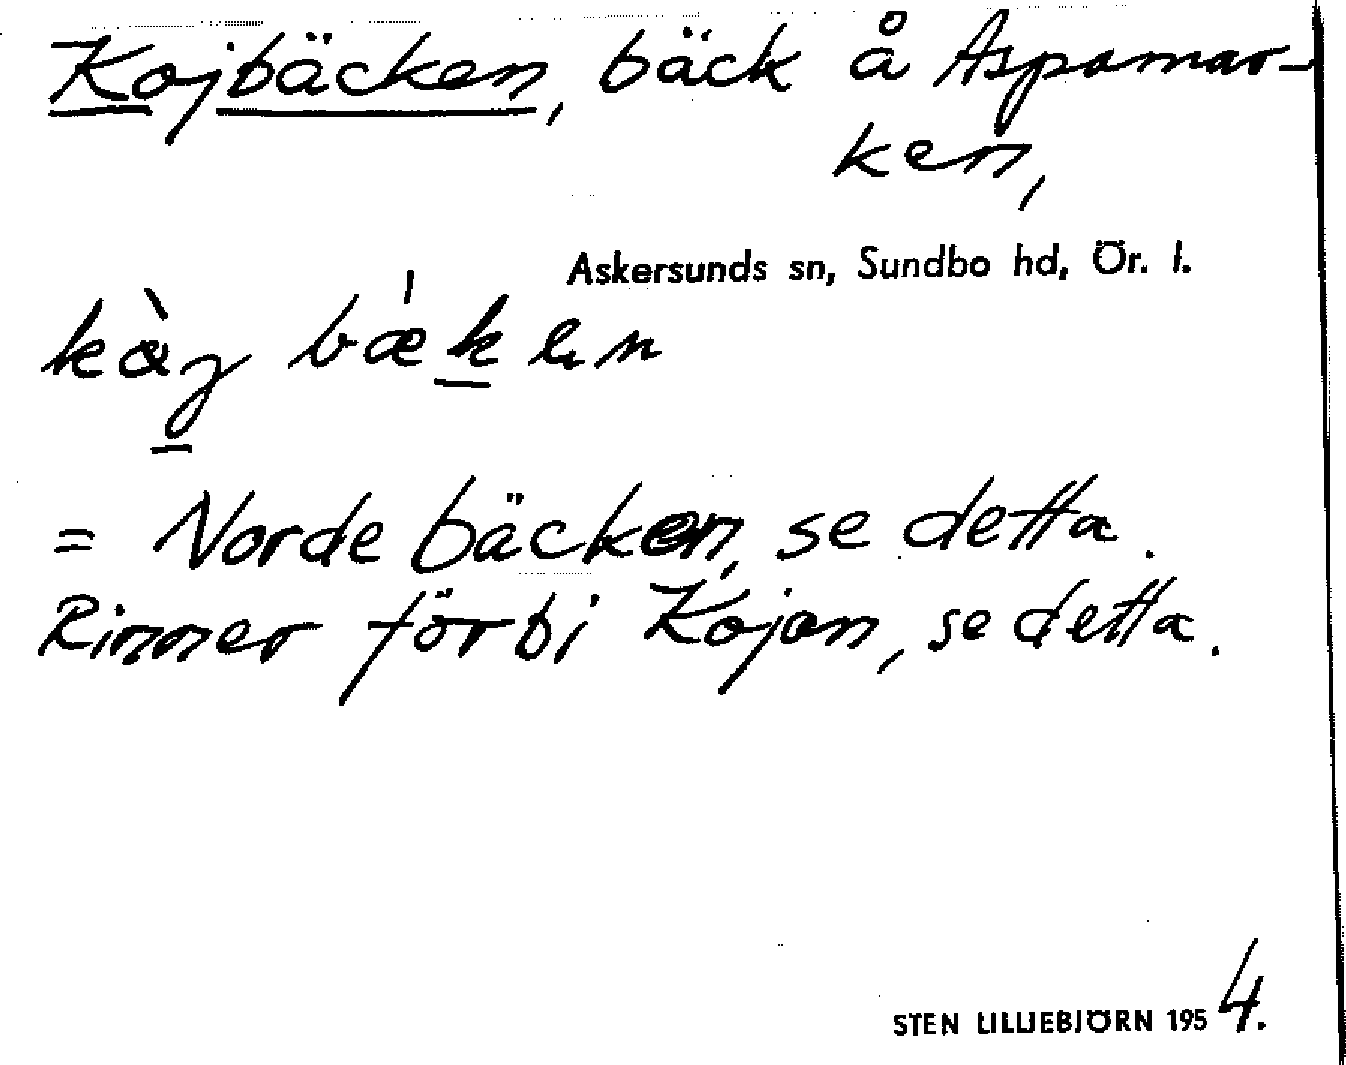 Kojbäcken, bäck å Aspamar-
ken,
Askersunds sn, Sundbo hd, Ör. l.
= Norde bäcken, se detta.
Rinner förbi Kojan, se detta.
STEN LILLIEBJÖRN 1954.